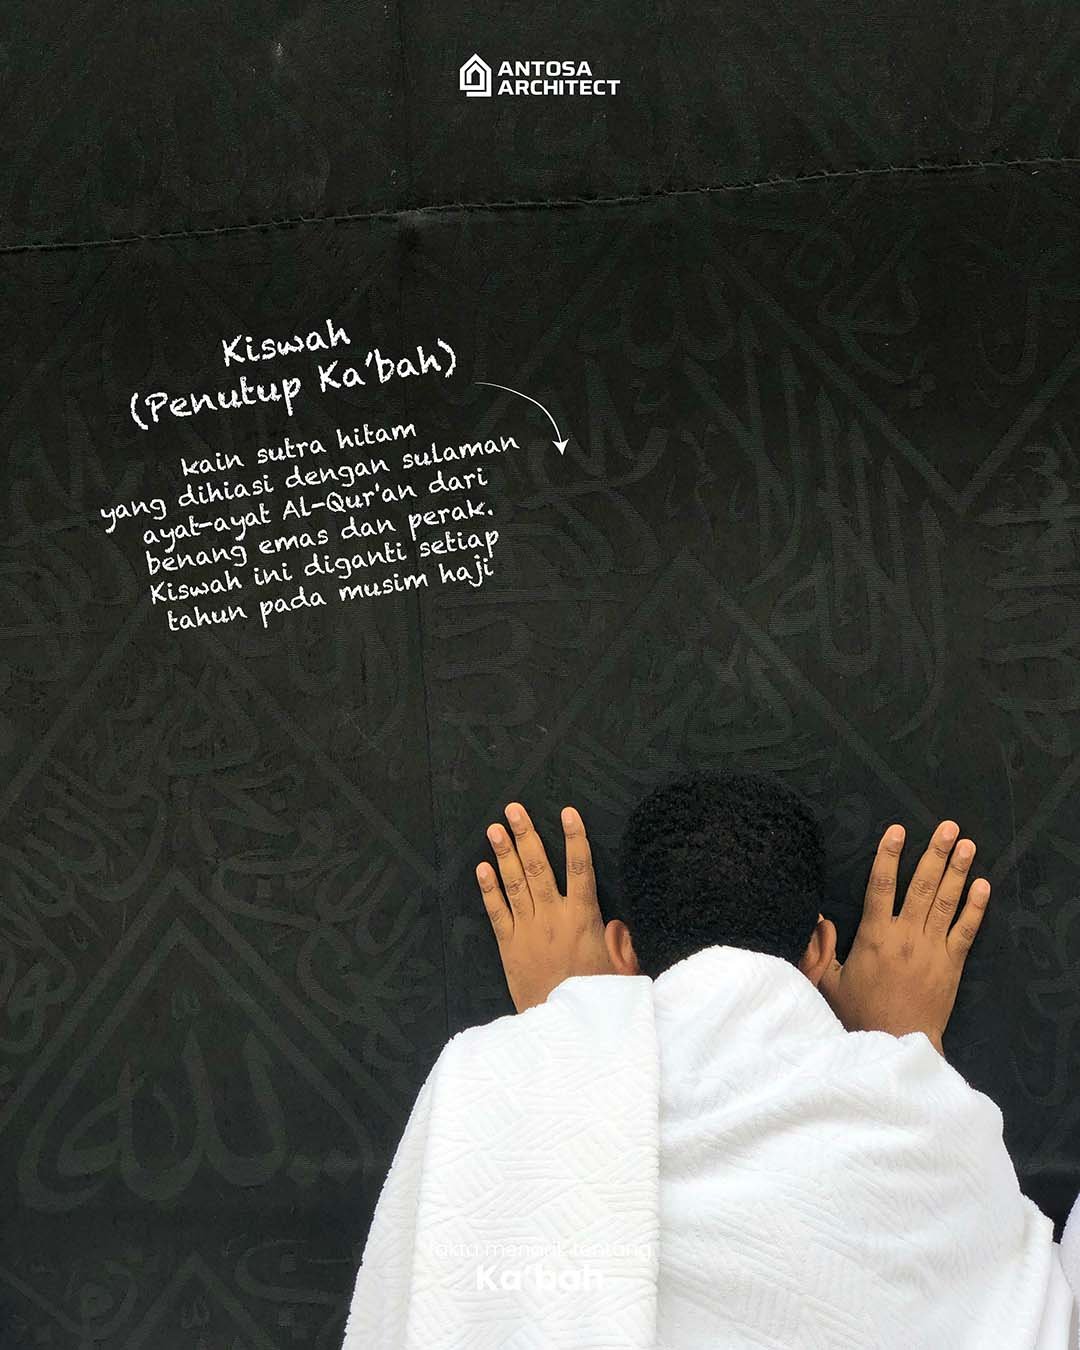 ANTOSA
ARCHITECT
Kiswah
(Penutup Ka'bah)
kain sutra hitam
yang dihiasi dengan sulaman
ayat-ayat Al-Qur'an dari
benang emas dan perak.
Kiswah ini diganti setiap
tahun pada musim haji
الله
fakta menarik tentang
Ka'bah